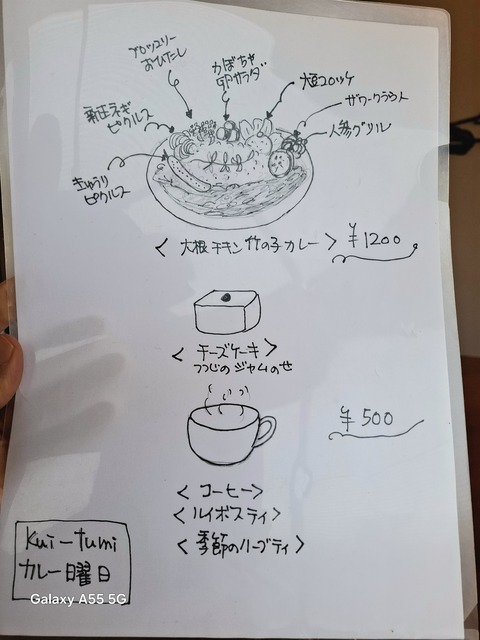 ブロッコリー
おひたし
かぼちゃ
卵サラダ
大豆コロッケ
ザワークラウト
人参グリル
新玉ネギ
ピクルス
きゅうり
ピクルス
<大根チキン竹の子カレー> ¥1200
<チーズケーキ>
つつじのジャムのせ
¥500
<コーヒー>
<ルイボスティ>
<季節のハーブティ>
Kui-tumi
カレー日曜日
Galaxy A55 5G